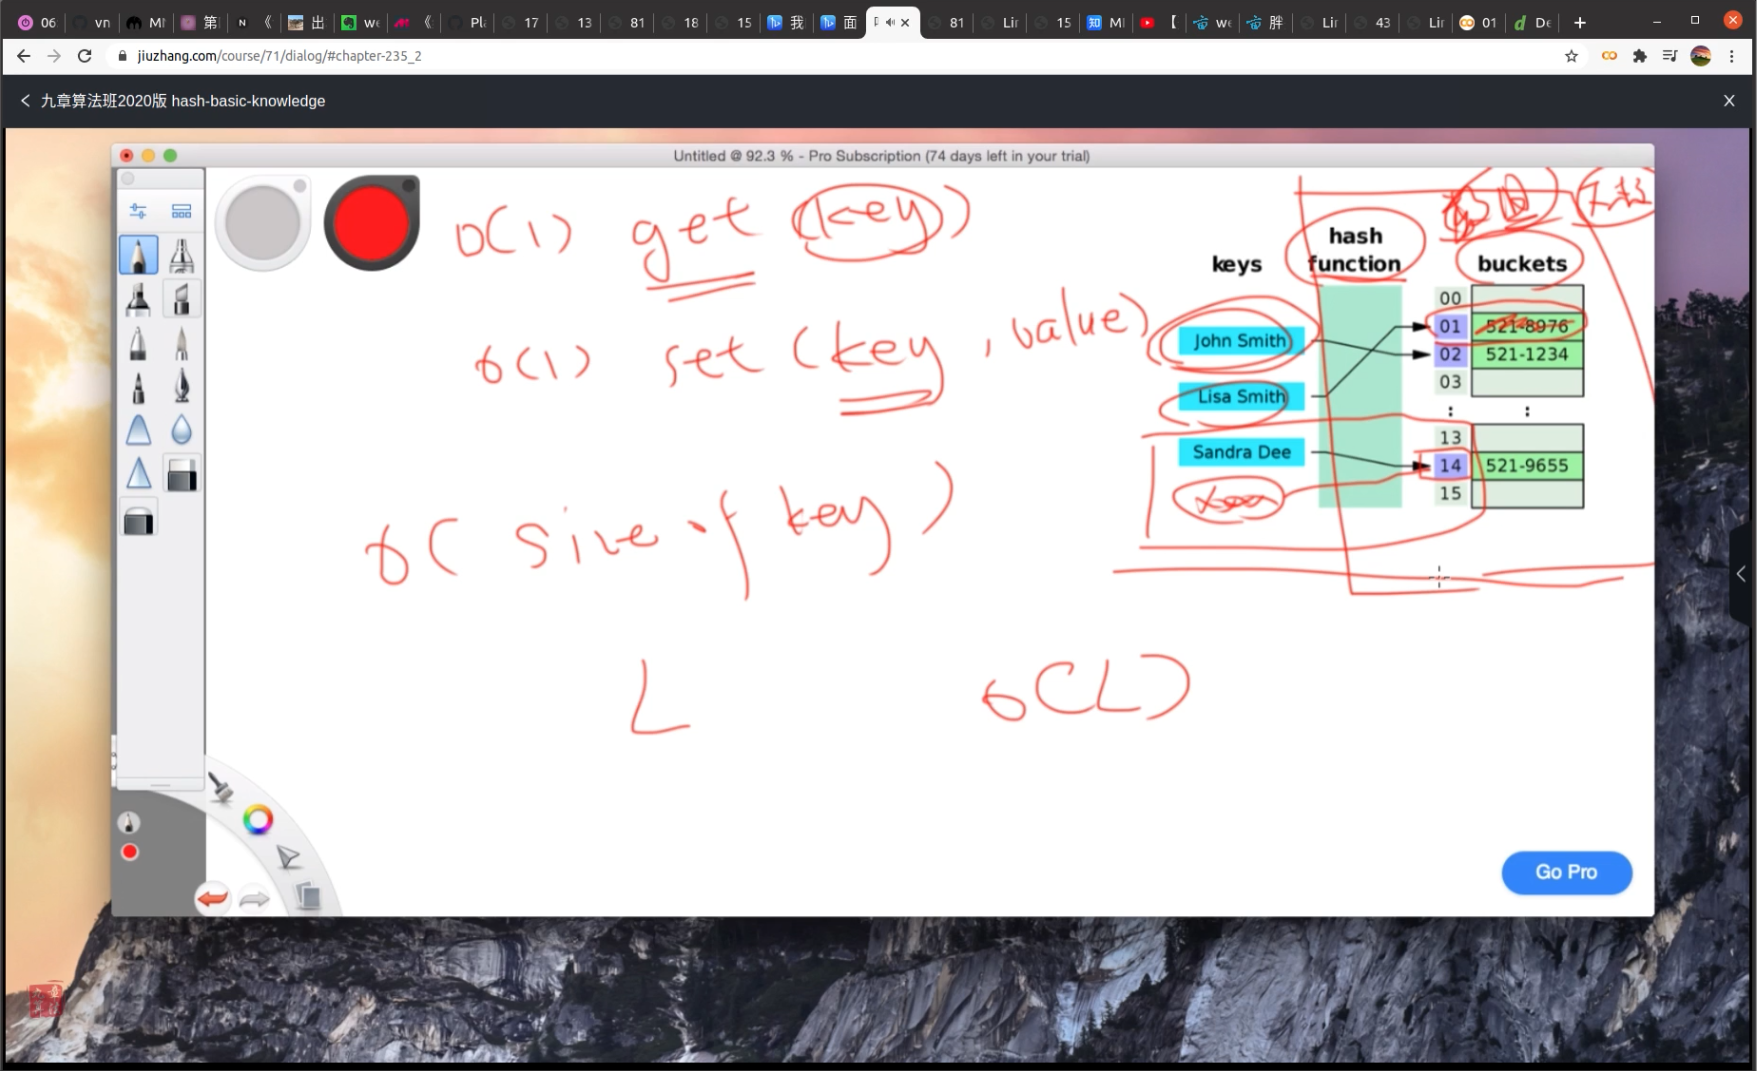 06 vn MM 第 N 《 出 we 《 Pla 17 13 81 18 15 我 面 81 Lir 15 知 MI 【 we 胖 Lir 43 Lir 01 De
jiuzhang.com/course/71/dialog/#chapter-235_2
九章算法班2020版 hash-basic-knowledge
Untitled @ 92.3 % - Pro Subscription (74 days left in your trial)
O(1) get (key)
O(1) set (key, value)
O( size of key )
L O(L)
hash
keys function buckets
00
John Smith 01 521-8976
02 521-1234
Lisa Smith 03
: :
13
Sandra Dee 14 521-9655
15
Go Pro